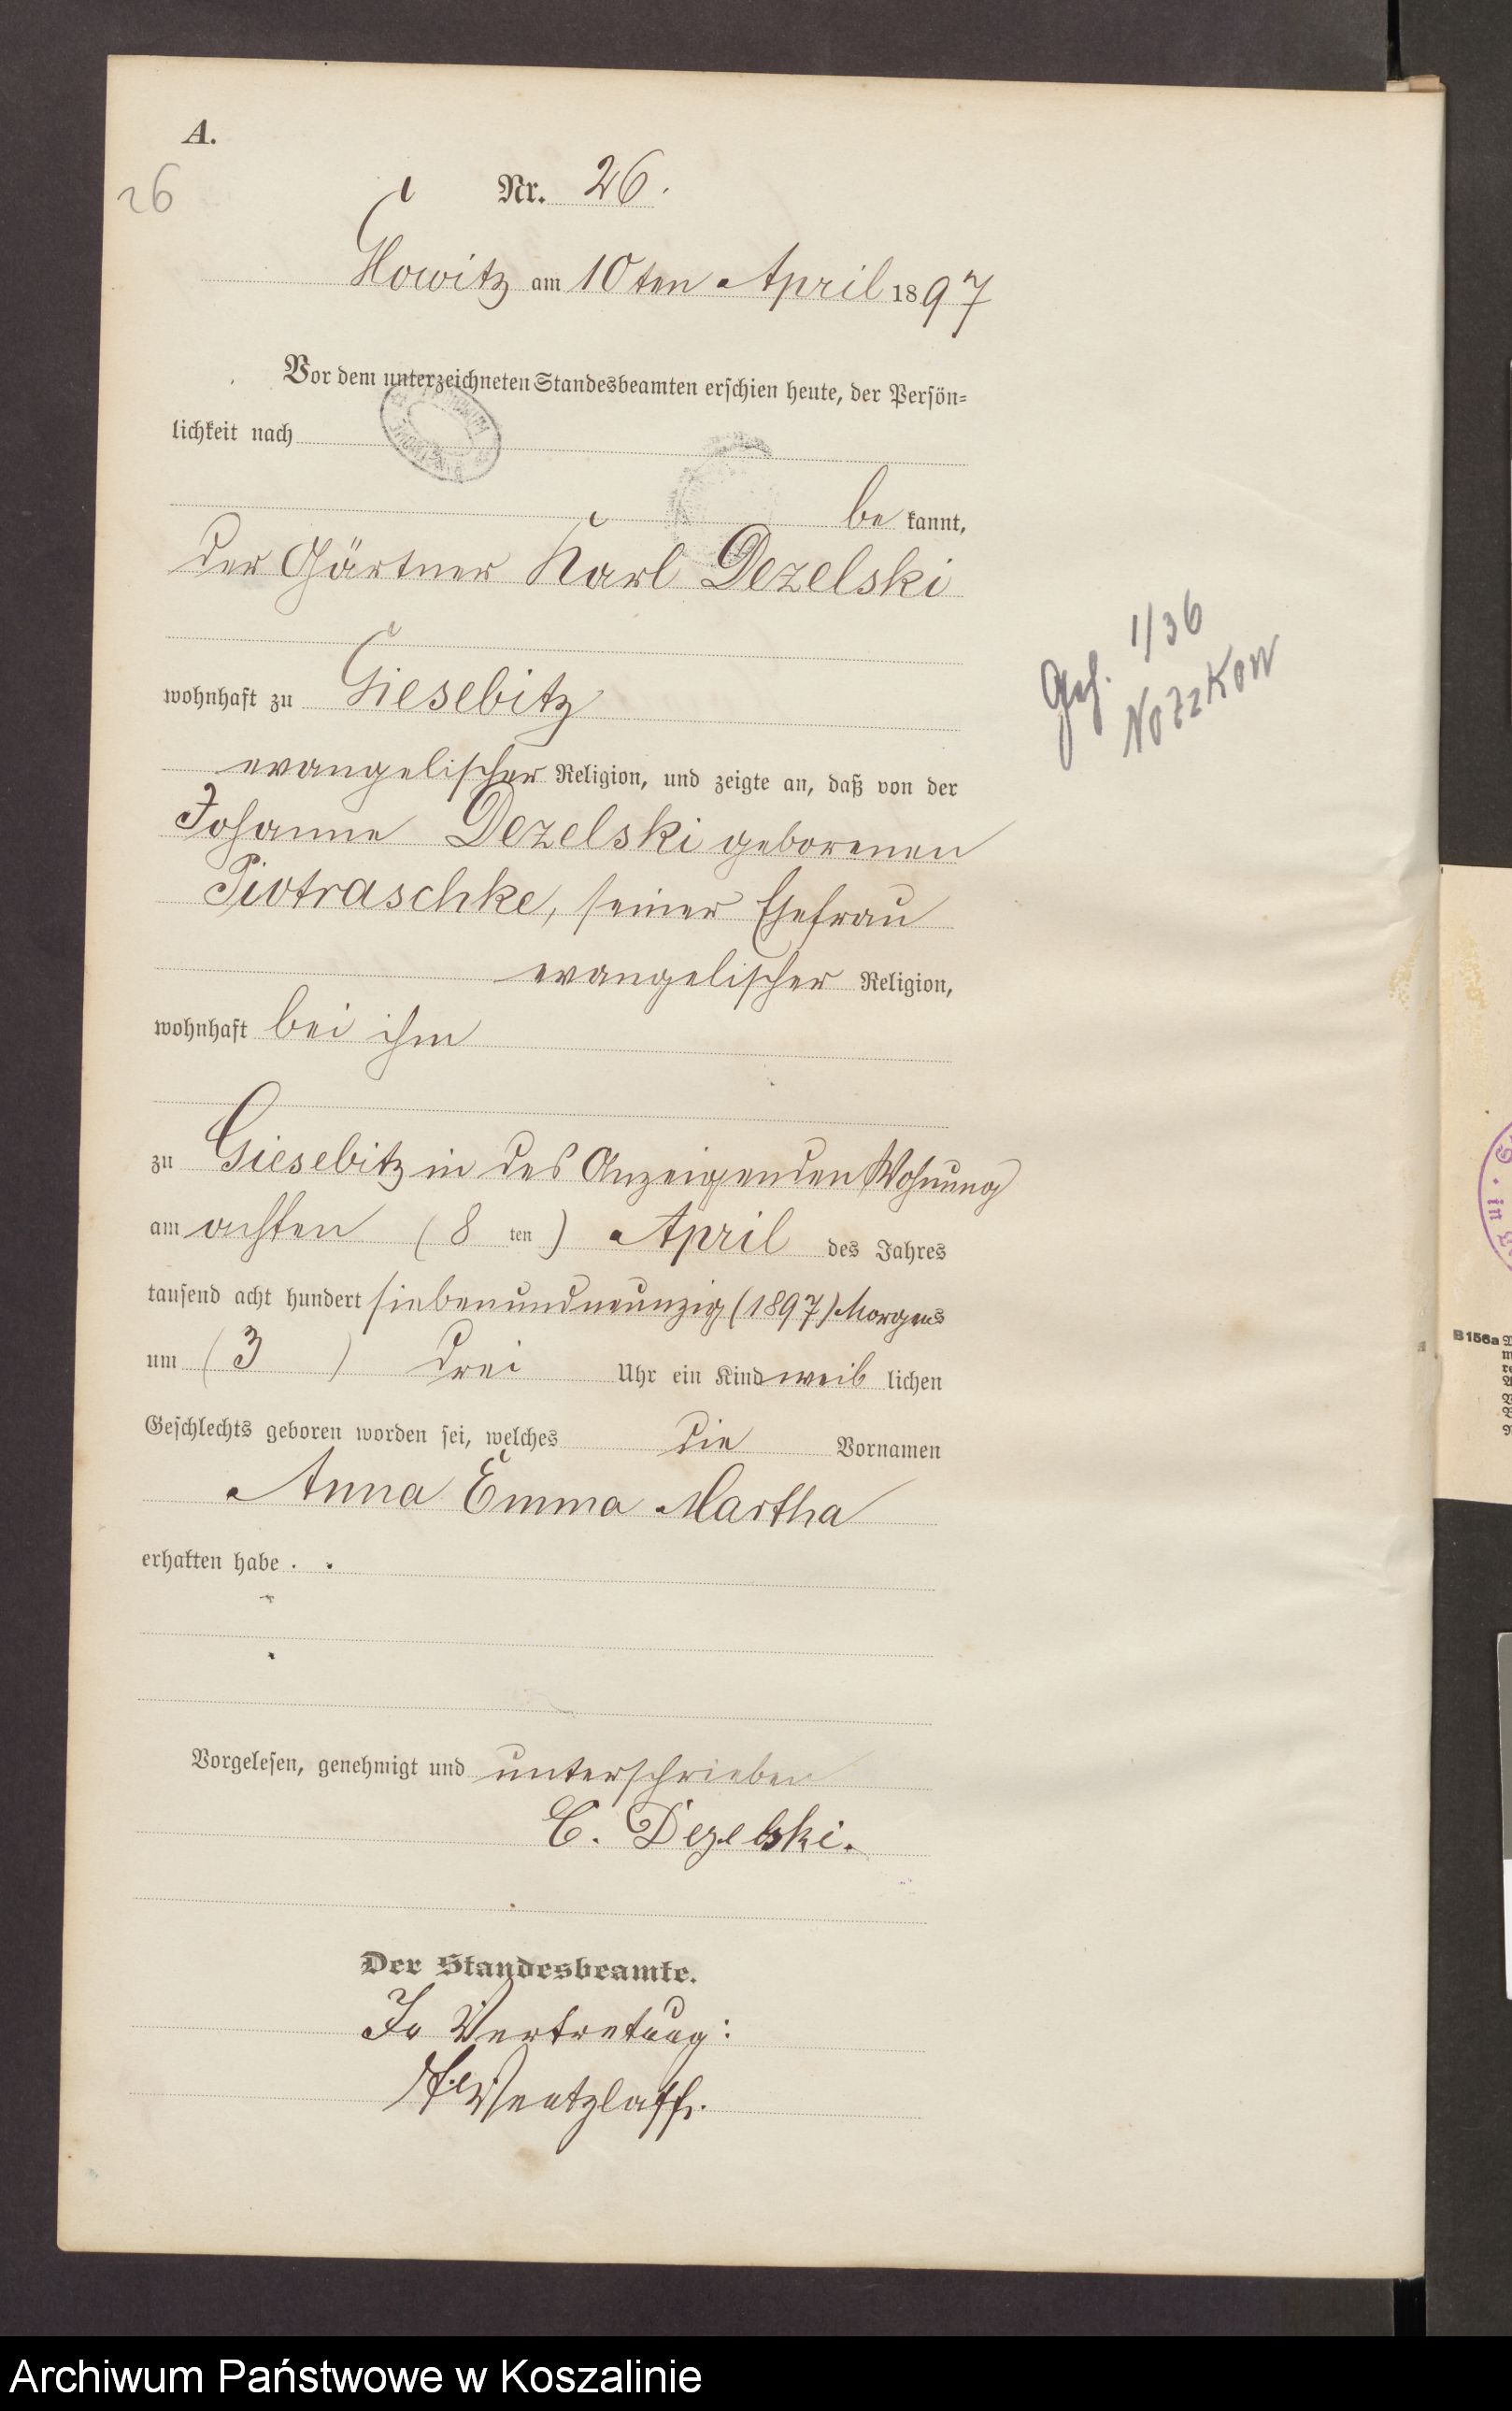 A.
26
Nr. 26.
Glowitz am 10ten April 1897
Vor dem unterzeichneten Standesbeamten erschien heute, der Persön-
lichkeit nach
be kannt,
der Gärtner Karl Dezelski
1/36
Nozzkow
wohnhaft zu Giesebitz
evangelischer Religion, und zeigte an, daß von der
Johanne Dezelski geborenen
Piotraschke, seiner Ehefrau
evangelischer Religion,
wohnhaft bei ihm
zu Giesebitz in des Anzeigenden Wohnung
am achten (8 ten) April des Jahres
tausend acht hundert siebenundneunzig (1897) Morgens
um (3) drei Uhr ein Kind weib lichen
Geschlechts geboren worden sei, welches die Vornamen
Anna Emma Martha
erhalten habe.
Vorgelesen, genehmigt und unterschrieben
C. Dezelski.
Der Standesbeamte.
In Vertretung:
Wentzlaff.
B 156a
Archiwum Państwowe w Koszalinie